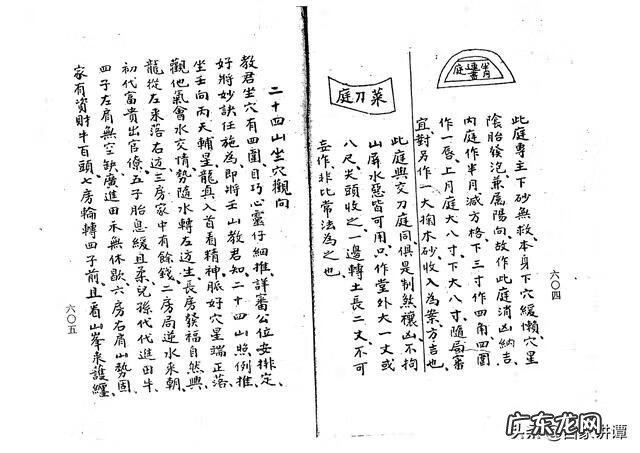 此庭專主下砂無救本身下穴緩懶穴星
陰胎發泡兼屬陽向故作此庭消凶納吉、
內庭作半月減方格下三寸作四角四圍
作一唇上月庭大八寸下大八寸、隨局審
宜對另作一大掬木砂收入為案方吉也
菜刀庭
此庭與交刀庭同俱是制煞穰凶不拘
山屏水惡皆可用只作堂外大一丈或
八尺尖頭收之一邊轉土長二丈不可
妄作非比常法為之也
六〇四
二十四山坐穴觀向
教君坐穴有四圍目巧心靈仔細推、詳審公位安排定、
好將妙訣任施為、即將壬山教君知二十四山照例推、
坐壬向丙天輔星、龍真入首看精神、脈好穴星端正落
觀他氣會水交情勢隨水轉左邊生長房發福自然興、
龍從左來落右邊三房家中有餘錢、二房局逆水來朝、
初代富貴出官僚、五子胎息緩且柔兒孫代代進田牛
四子左肩無空缺、廣進田永無休歇六房右肩山勢固、
家有資財牛百頭、七房輪轉四子前、且看山峯來護纏、
六〇五
广东龙网